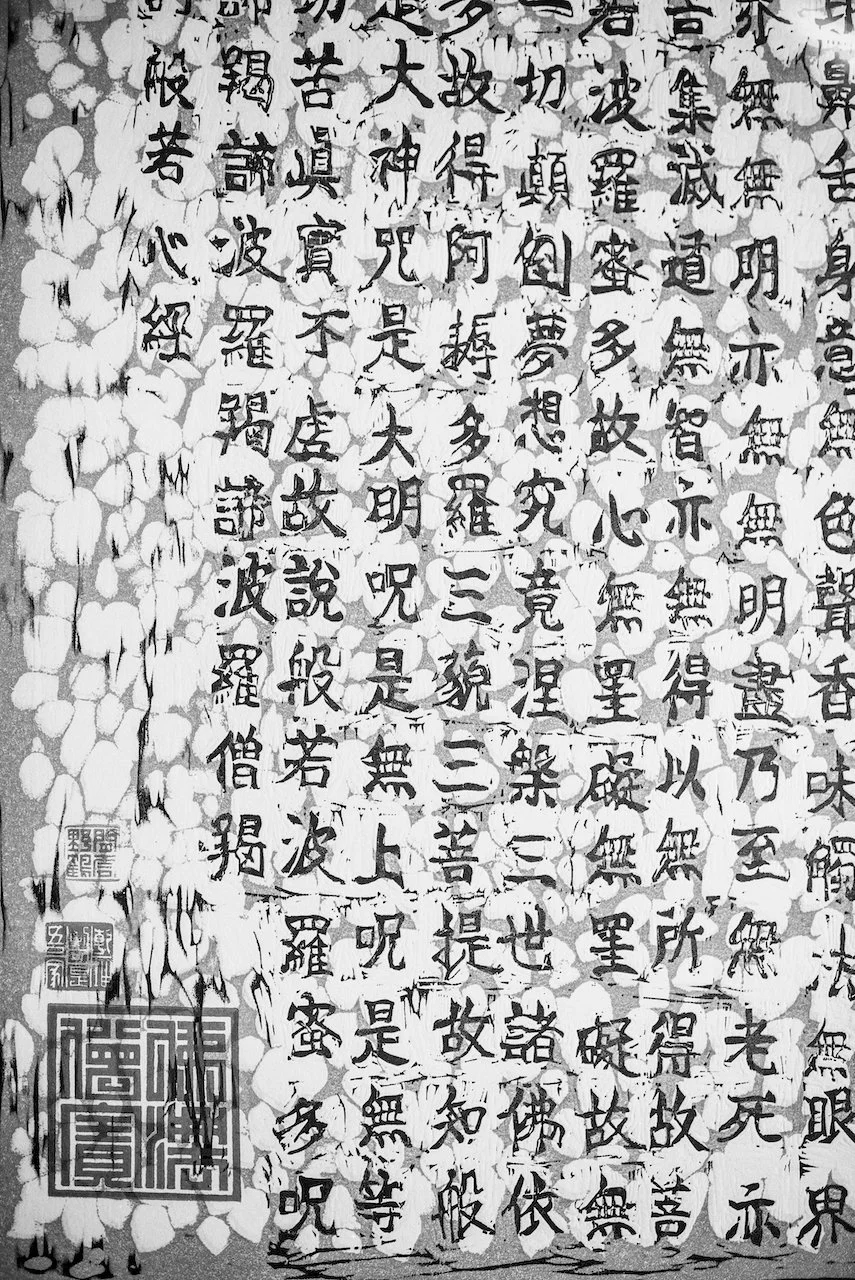 耳鼻舌身意無色聲香味觸法無眼界
界無無明亦無無明盡乃至無老死亦
苦集滅道無智亦無得以無所得故菩
若波羅蜜多故心無罣礙無罣礙故無
一切顛倒夢想究竟涅槃三世諸佛依
多故得阿耨多羅三藐三菩提故知般
是大神咒是大明呪是無上呪是無等
切苦眞實不虛故說般若波羅蜜多呪
諦羯諦波羅羯諦波羅僧羯
般若心經